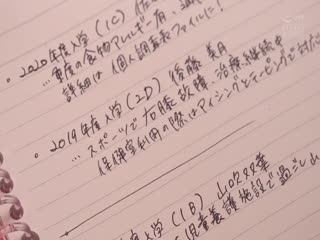 ・2020年度入学(1C)佐
…重度の食物アレルギー有、
詳細は個人調査表ファイルに!
・2019年度入学(2D)後藤 美月
…スポーツで右膝故障、治療継続中
保健室利用の際はアイシングとテーピングで対応
年度入学(1B)山口
児童養護施設で過ごし